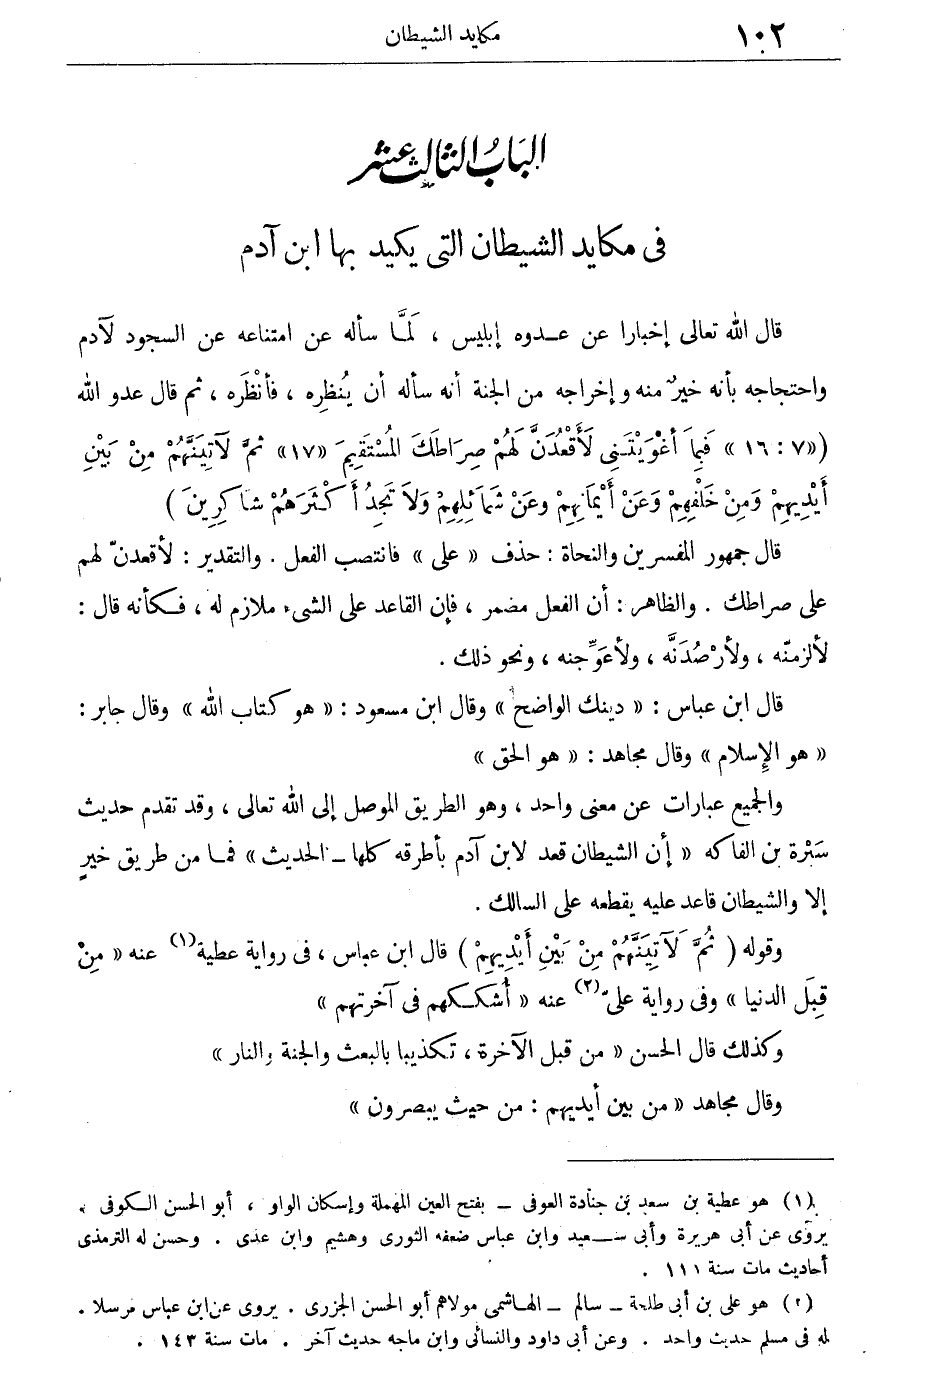 ١٠٢ مكايد الشيطان
البَابُ الثَّالِثُ عَشَر
فى مكايد الشيطان التى يكيد بها ابن آدم
قال الله تعالى إخبارا عن عــدوه إبليس ، لَمَّا سأله عن امتناعه عن السجود لآدم
واحتجاجه بأنه خيرٌ منه وإخراجه من الجنة أنه سأله أن يُنظِره ، فأنْظَره ، ثم قال عدو الله
(«٧ : ١٦ » فَبِمَا أَغْوَيْتَـنِى لَأَقْعُدَنَّ لَهُمْ صِرَاطَكَ المُسْتَقِيمَ «١٧» ثمَّ لَآتِيَنَّهُمْ مِنْ بَيْنِ
أَيْدِيهِمْ وَمِنْ خَلْفِهِمْ وَعَنْ أَيْمَانِهِمْ وعَنْ شَمَائِلِهِمْ وَلاَ تَجِدُ أَكْثَرَهُمْ شاَكِرِينَ )
قال جمهور المفسرين والنحاة : حذف « على » فانتصب الفعل . والتقدير : لأقعدنّ لهم
على صراطك . والظاهر : أن الفعل مضمر ، فإن القاعد على الشىء ملازم له ، فـكأنه قال :
لألزمنّه ، ولأرْصُدَنَّه ، ولأعَوِّجنه ، ونحو ذلك .
قال ابن عباس : « دينك الواضح » وقال ابن مسعود : « هو كتاب الله » وقال جابر :
« هو الإسلام » وقال مجاهد : « هو الحق »
والجميع عبارات عن معنى واحد ، وهو الطريق الموصل إلى الله تعالى ، وقد تقدم حديث
سَبْرة بن الفاكه « إن الشيطان قعد لابن آدم بأطرقه كلها ــ الحديث » فمـا من طريق خيرٍ
إلا والشيطان قاعد عليه يقطعه على السالك .
وقوله ( ثُمَّ لَآتِيَنَّهُمْ مِنْ بَيْنِ أَيْدِيهِمْ ) قال ابن عباس ، فى رواية عطية(١) عنه « مِنْ
قِبَل الدنيا » وفى رواية علىّ(٢) عنه « أُشكـكهم فى آخرتهم »
وكذلك قال الحسن « من قبل الآخرة ، تكذيبا بالبعث والجنة والنار »
وقال مجاهد « من بين أيديهم : من حيث يبصرون »
(١) هو عطية بن سعد بن جنادة العوفى ــ بفتح العين المهملة وإسكان الواو ، أبو الحسن الـكوفى .
يروى عن أبى هريرة وأبى سـعيد وابن عباس ضعفه الثورى وهشيم وابن عدى . وحسن له الترمذى
أحاديث مات سنة ١١١ .
(٢) هو على بن أبى طلحة ــ سالم ــ الهـاشمى مولاهم أبو الحسن الجزرى . يروى عن ابن عباس مرسلا .
له فى مسلم حديث واحد . وعن أبى داود والنسائى وابن ماجه حديث آخر . مات سنة ١٤٣ .